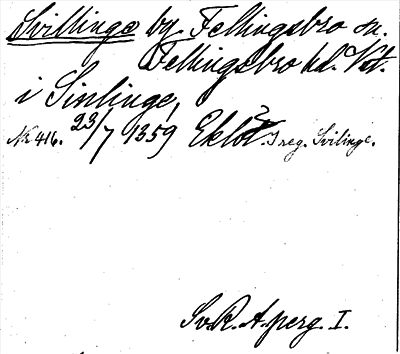 Svillinge by Fellingsbro sn.
Fellingsbro hd. Vst.
i Sinlinge,
Nr 416. 23/7 1359 Eklöt? I reg. Svilinge.
Sv. R. A. perg. I.